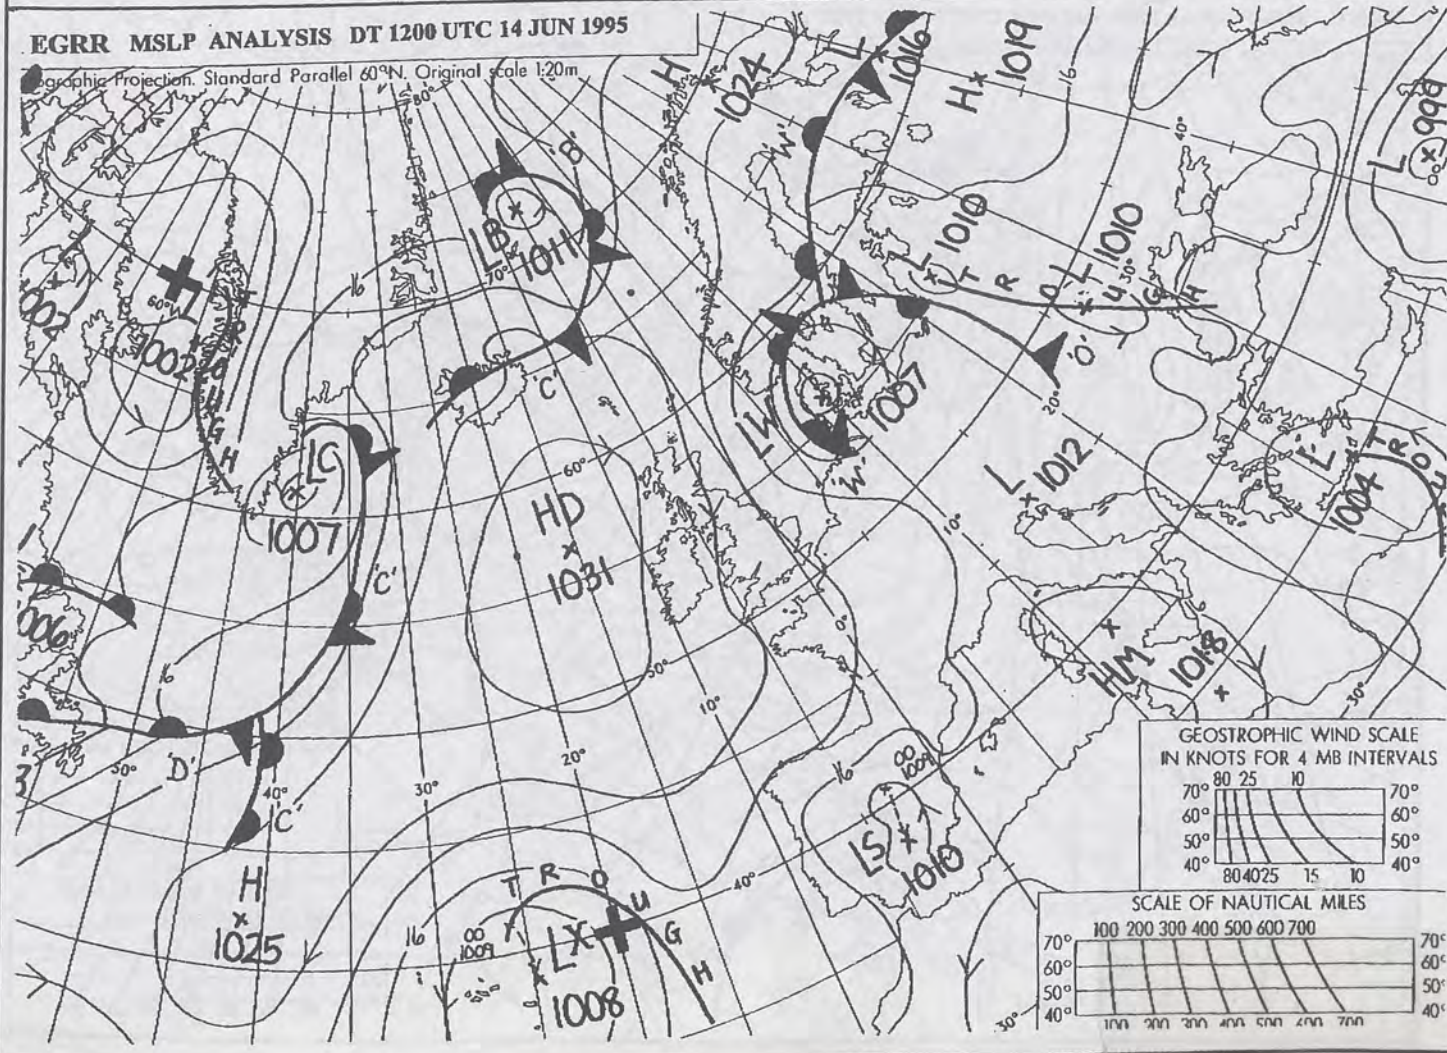 EGRR MSLP ANALYSIS DT 1200 UTC 14 JUN 1995
Projection. Standard Parallel 60°N. Original scale 1:20m
80°
H
1024
L
1016
H
1019
16
40°
L
999
'B'
LB
1011
70°
16
'W'
L
1010
L
1010
T R O U G H
30°
'O'
20°
60°
L
1002
U
G
H
'C'
LW
1007
'W'
LC
1007
60°
HD
1031
'C'
L
1012
10°
L
1004
T R O U
006
0°
HM
1018
16
50°
10°
30°
16
50°
'D'
40°
'C'
30°
20°
16
00
1009
LS
1010
40°
H
1025
16
00
1009
T R O U G H
LX
1008
30°
GEOSTROPHIC WIND SCALE
IN KNOTS FOR 4 MB INTERVALS
80 25 10
70° 70°
60° 60°
50° 50°
40° 40°
80 40 25 15 10
SCALE OF NAUTICAL MILES
100 200 300 400 500 600 700
70° 70°
60° 60°
50° 50°
40° 40°
100 200 300 400 500 600 700